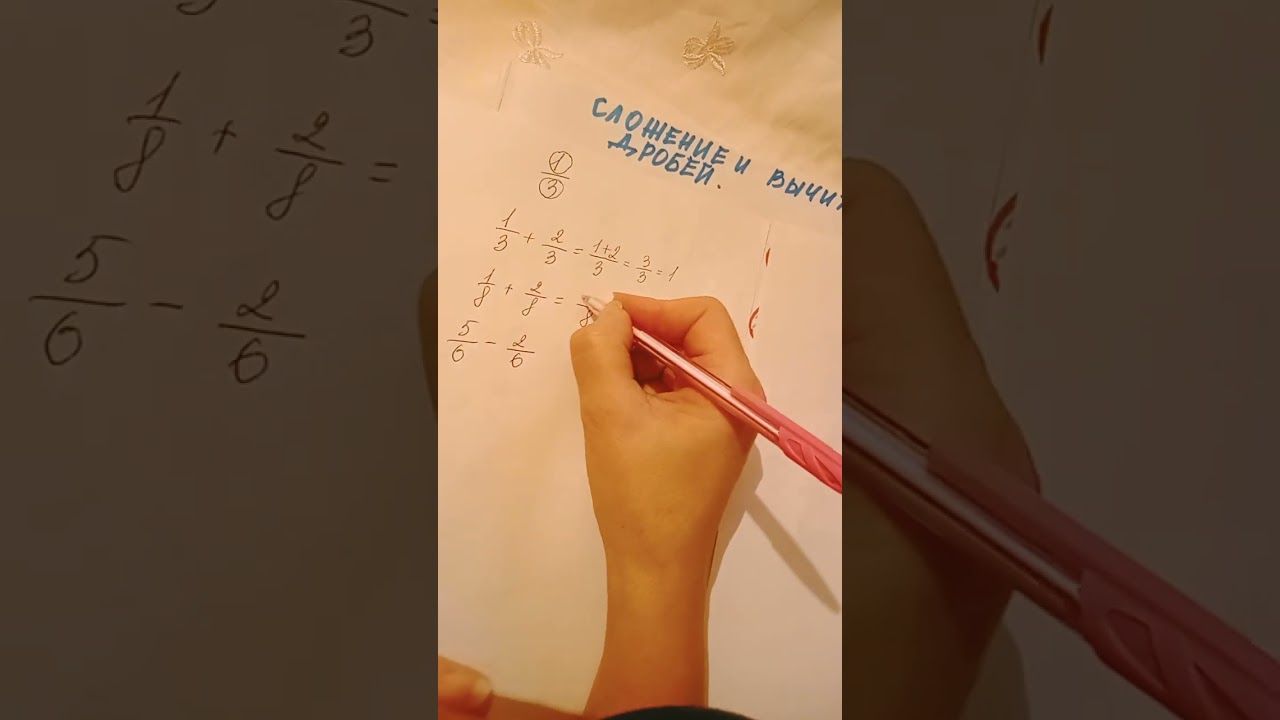 СЛОЖЕНИЕ И ВЫЧИТ
ДРОБЕЙ.
1/3
1/3 + 2/3 = 1+2/3 = 3/3 = 1
1/8 + 2/8 = /8
5/6 - 2/6